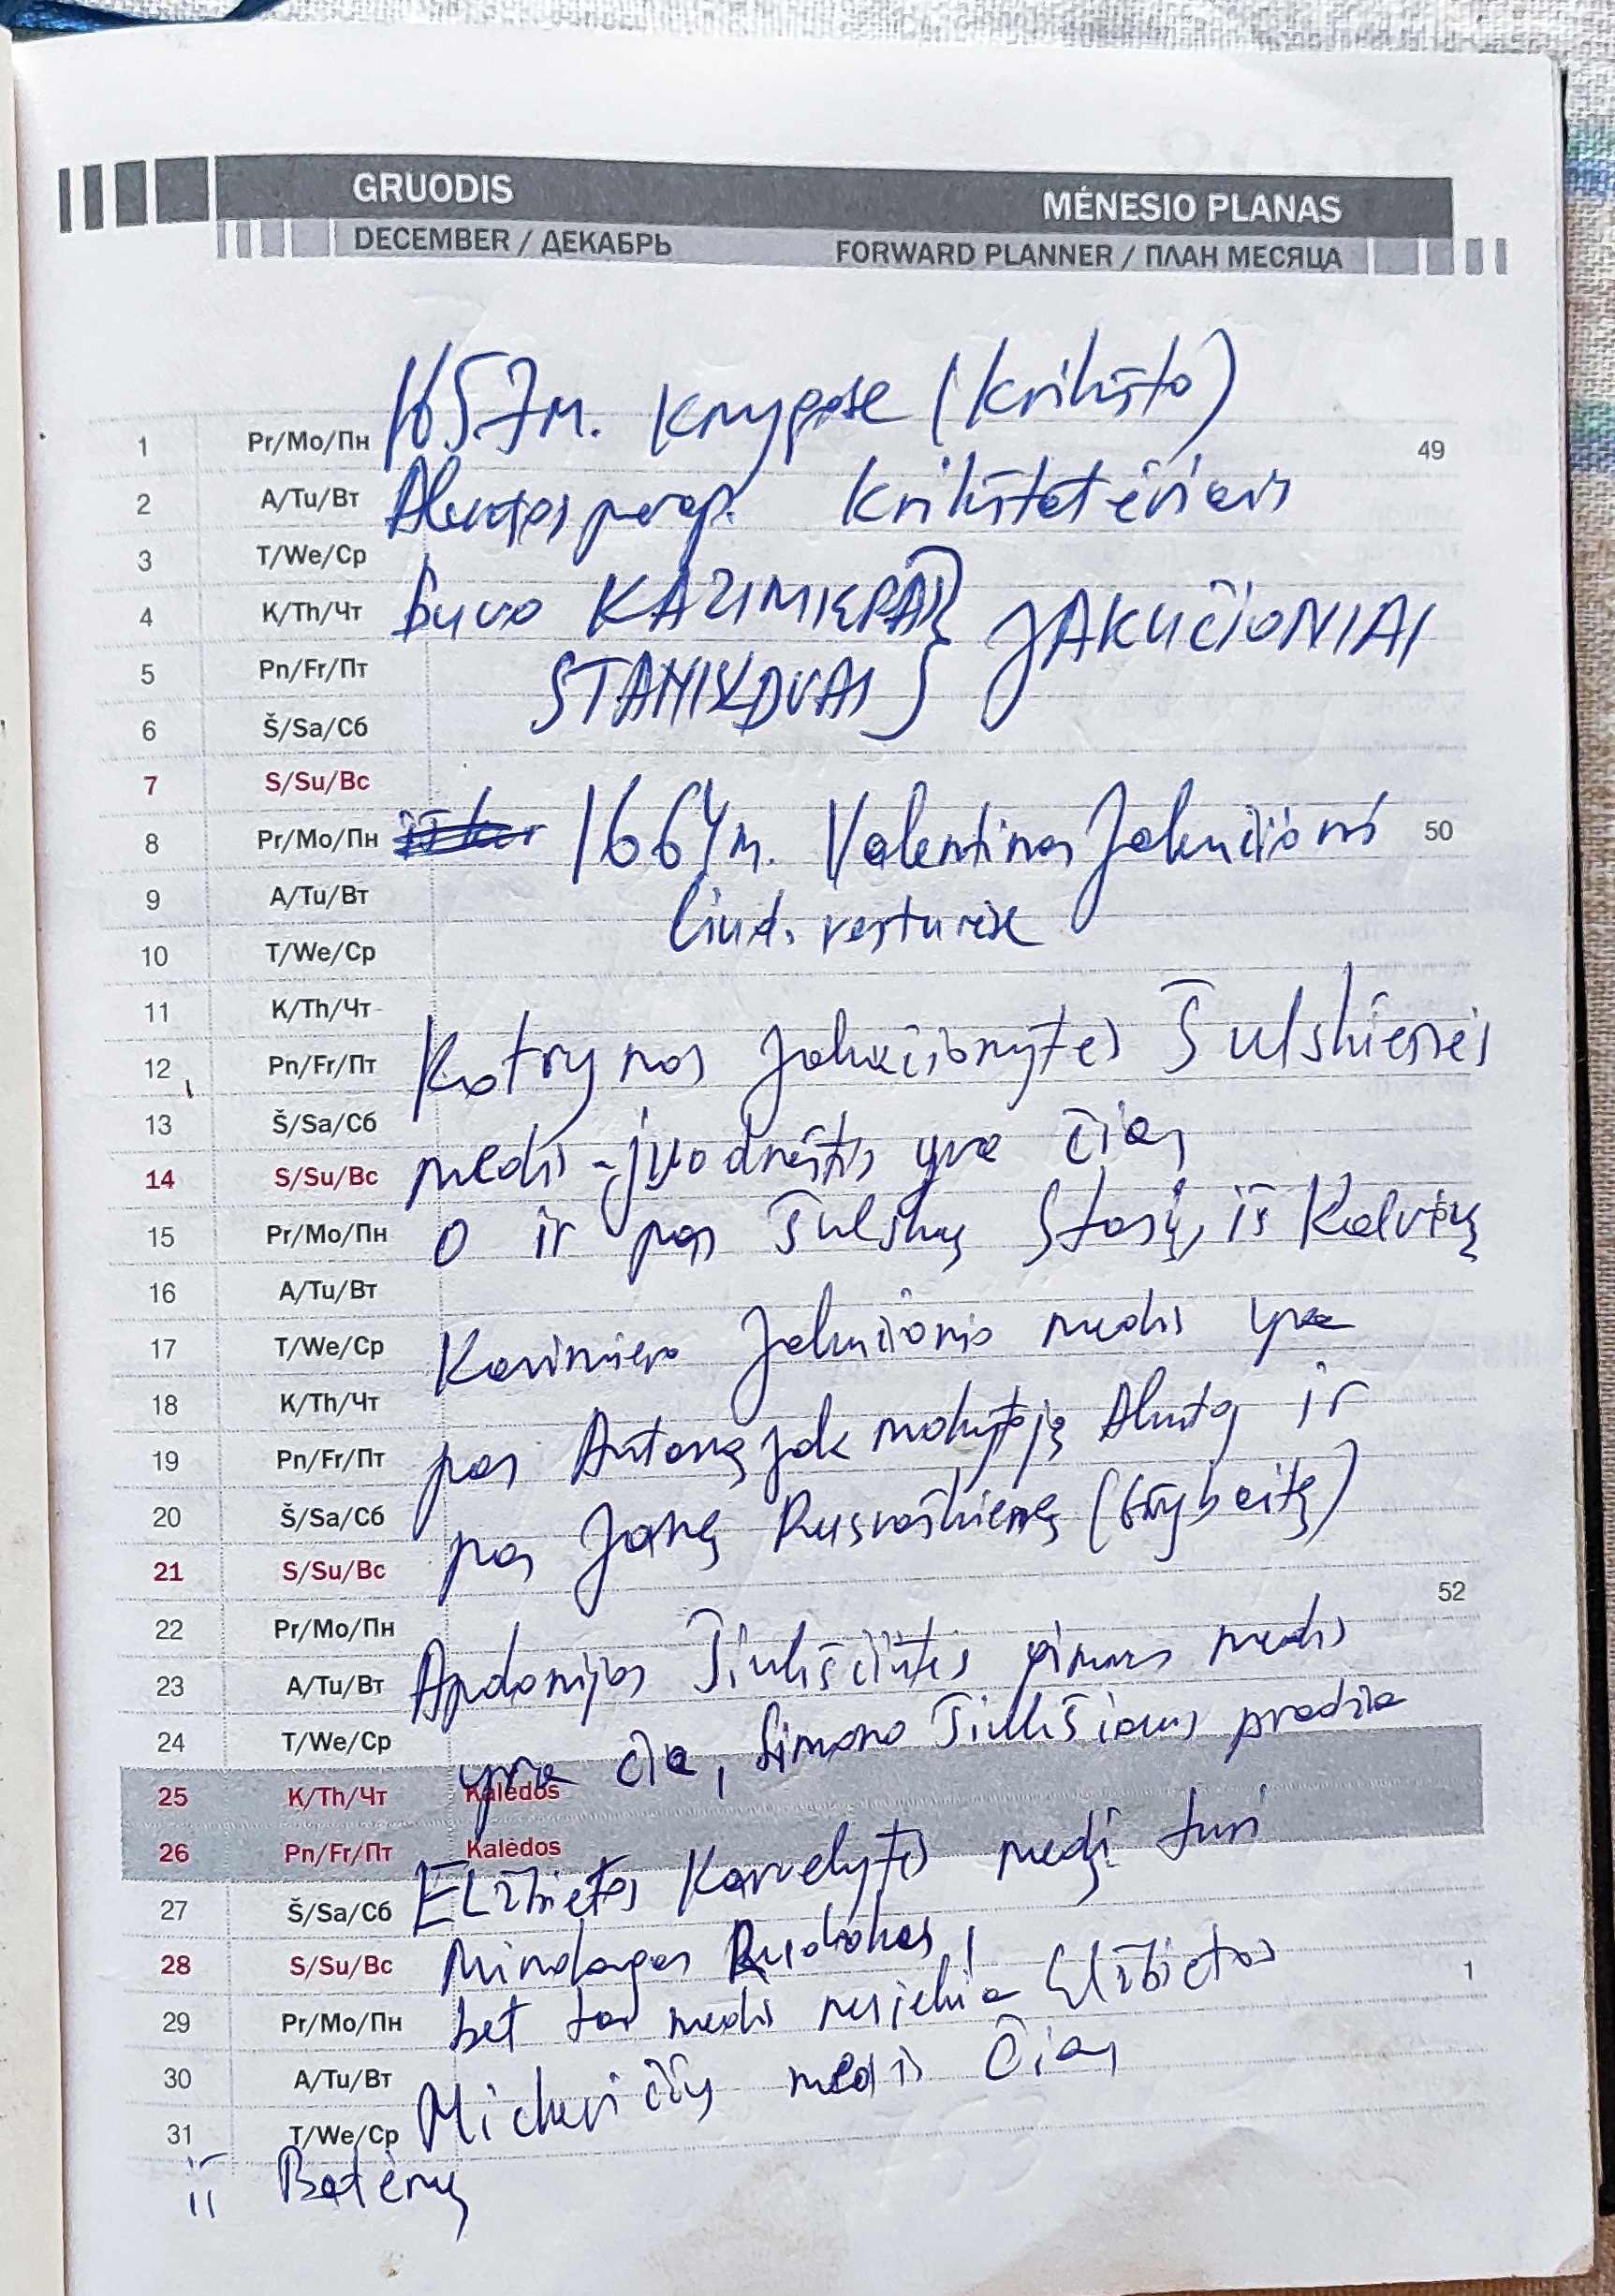 GRUODIS MĖNESIO PLANAS
DECEMBER / ДЕКАБРЬ FORWARD PLANNER / ПЛАН МЕСЯЦА
1657m. Knygose (Krikšto)
1 Pr/Mo/Пн 49
Alantos parap. Krikštatėviais
2 A/Tu/Вт
3 T/We/Ср
buvo KAZIMIERAS } JAKUČIONIAI
4 K/Th/Чт
STANISLOVAS }
5 Pn/Fr/Пт
6 Š/Sa/Сб
7 S/Su/Вс
1664m. Valentinas Jakučionis
8 Pr/Mo/Пн 50
9 A/Tu/Вт
liud. vestuvėse
10 T/We/Ср
11 K/Th/Чт
Kotrynos Jakučionytės Šulskienės
12 Pn/Fr/Пт
13 Š/Sa/Сб
medis - juodraštis yra čia
14 S/Su/Вс
15 Pr/Mo/Пн
O ir pas Šulskų Stasį, iš Kalvių
16 A/Tu/Вт
17 T/We/Ср
Kazimiero Jakučionio medis yra
18 K/Th/Чт
pas Antaną Jak mokytoją Alantoj ir
19 Pn/Fr/Пт
20 Š/Sa/Сб
pas Janę (Grybaitę)
21 S/Su/Вс
52
22 Pr/Mo/Пн
Apolonijos giminės medis
23 A/Tu/Вт
24 T/We/Ср
yra čia, Simono pradžia
25 K/Th/Чт Kalėdos
26 Pn/Fr/Пт Kalėdos
Elžbietos Karvelytės medį turi
27 Š/Sa/Сб
28 S/Su/Вс
Mindaugas Rudokas,
1
29 Pr/Mo/Пн
bet tas medis nesiekia Elžbietos
30 A/Tu/Вт
Mickevičių medis čia
31 T/We/Ср
iš Batėnų